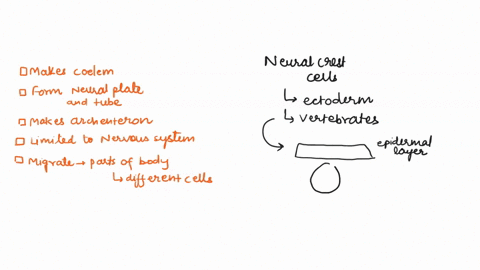 Makes coelem
Form Neural plate
and tube
Makes archenteron
Limited to Nervous system
Migrate → parts of body
↳ different cells
Neural crest
cells
↳ ectoderm
↳ vertebrates
epidermal
layer